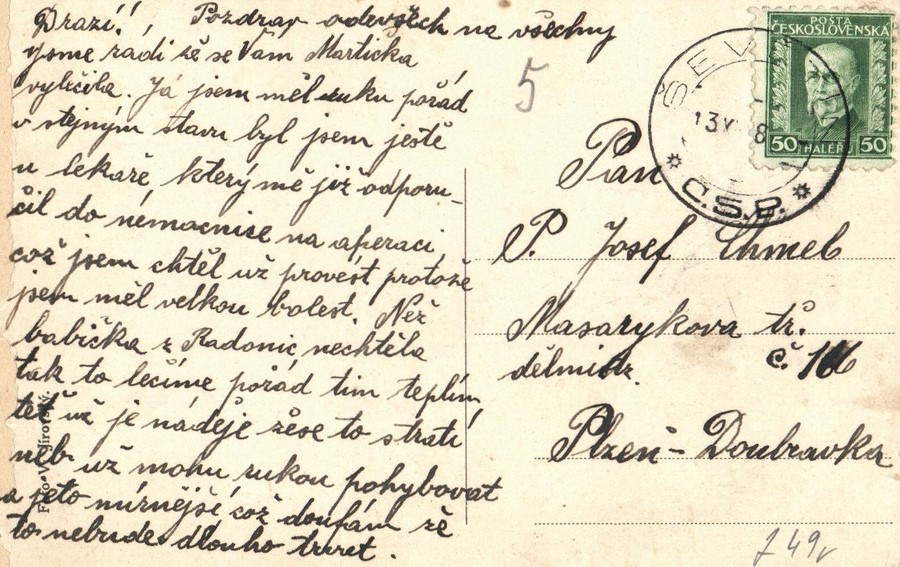 Drazí!, Pozdrav odevšech na všechny
jsme rádi že se Vám Martička
vylíčila. Já jsem měl ruku pořád
v stejným stavu byl jsem ještě
u lekaře který mě již odporu-
čil do němocnise na aperaci,
což jsem chtěl už provést protože
jsem měl velkou bolest. Než
babička z Radonic nechtěla
tak to lečíme pořád tim teplím
teť už je náděje žese to stratí
neb už mohu rukou pohybovat
a jeto mírnější což doufám že
to nebude dlouho trvat.
5
POŠTA
ČESKOSLOVENSKÁ
50 HALÉŘŮ 50
Č.S.P.
Pan
P. Josef Chmel
Masarykova tř.
dělnictr. č. 166
Plzeň-Doubravka